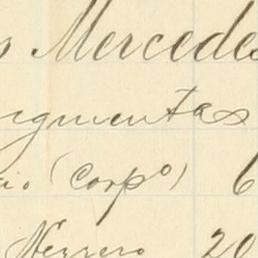 s Mercedes
igmentas
io (Corpº) 6
Herrero 20